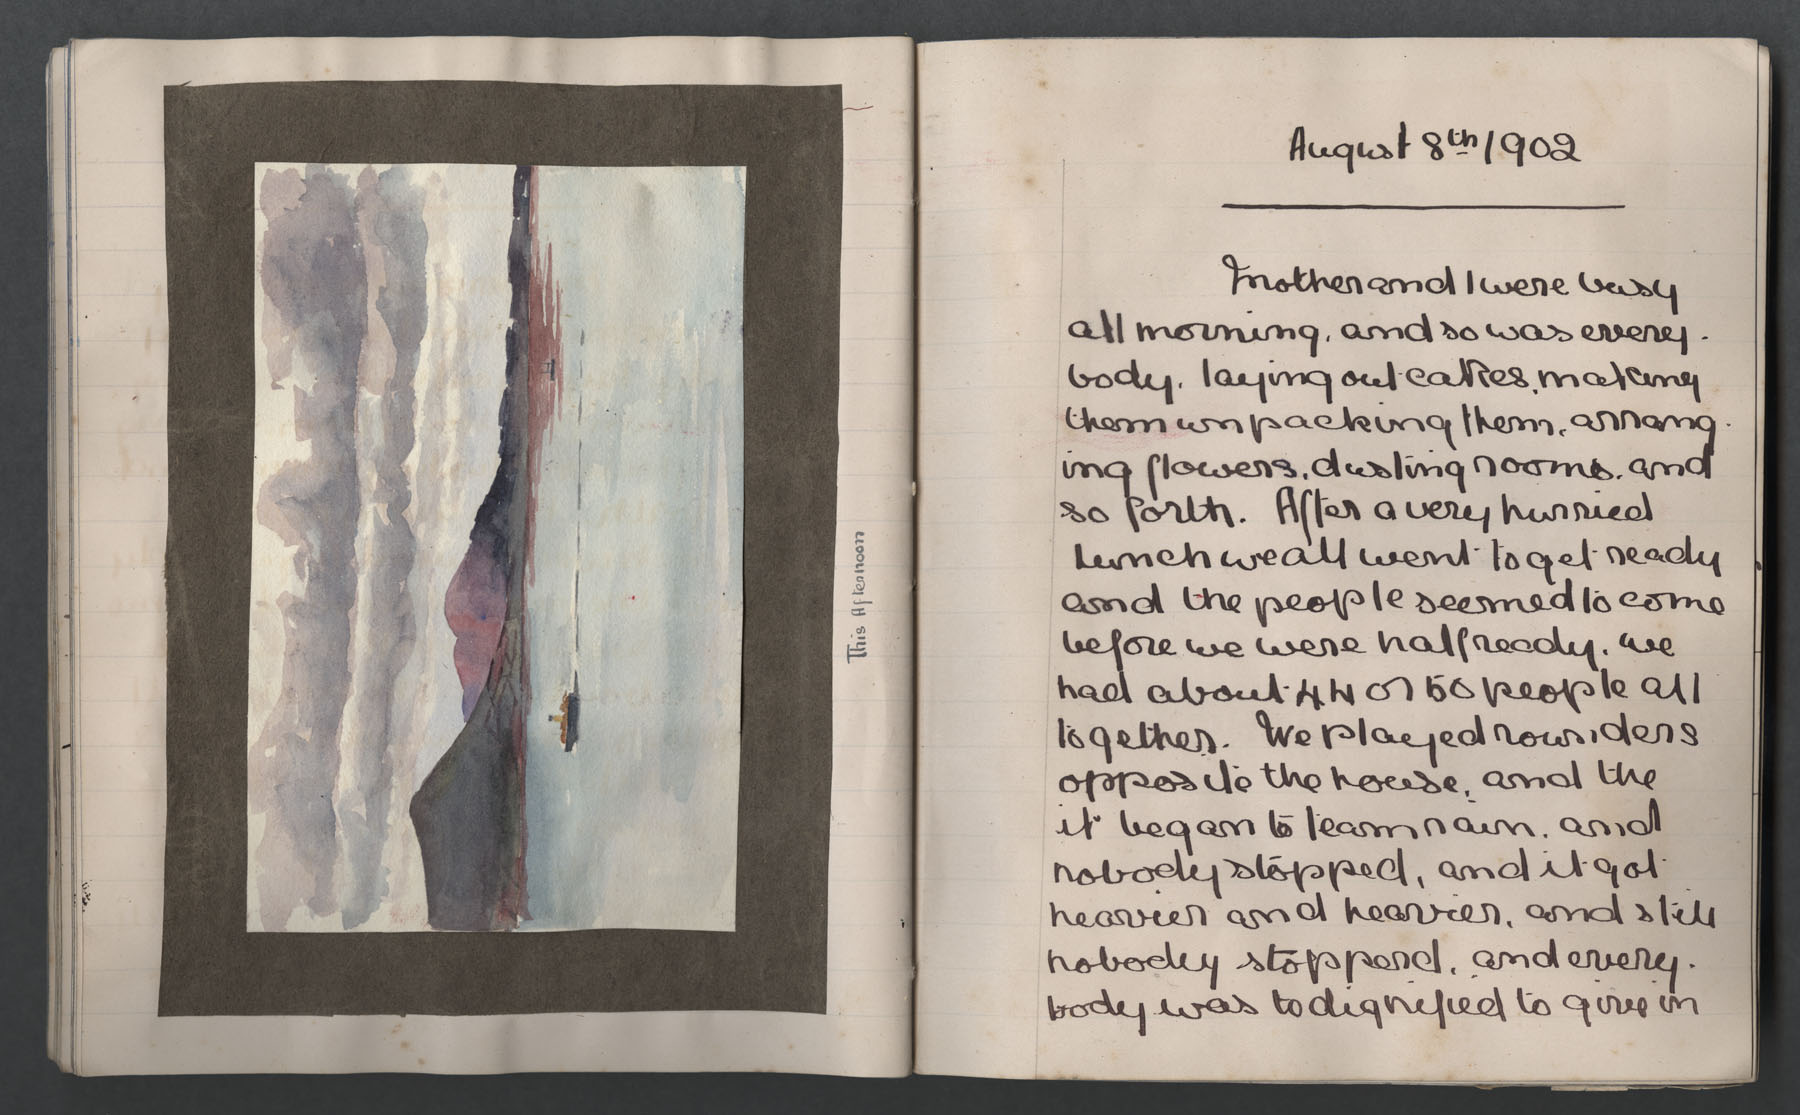 This Afternoon
August 8th 1902
Mother and I were busy
all morning, and so was every-
body, laying out cakes, making
them unpacking them, arrang-
ing flowers, dusting rooms, and
so forth. After a very hurried
lunch we all went to get ready
and the people seemed to come
before we were half ready, we
had about 44 or 50 people all
together. We played rounders
opposite the house, and the
it began to rain, and
nobody stopped, and it got
heavier and heavier, and still
nobody stopped, and every-
body was to dignified to give in